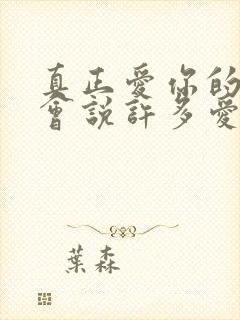 真正愛你的
會說許多愛
葉森